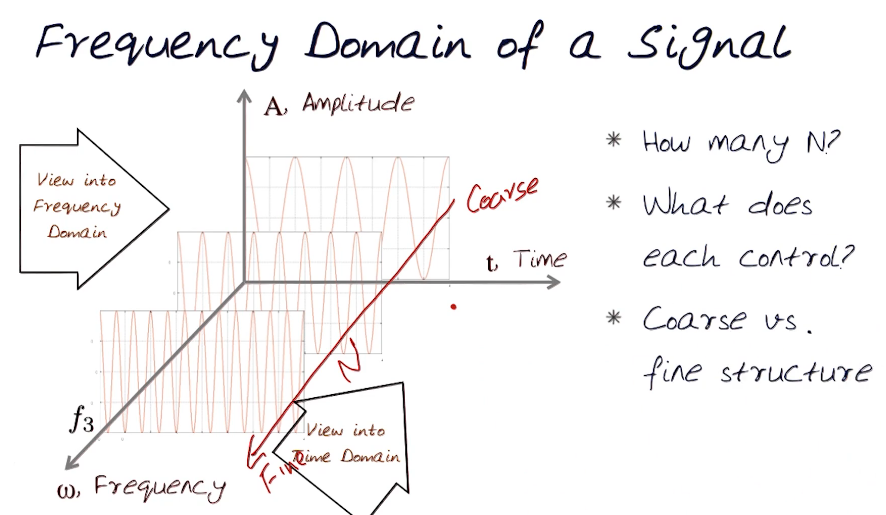 Frequency Domain of a Signal
A, Amplitude
View into
Frequency
Domain
Coarse
t, Time
N
f3
View into
Time Domain
Fine
ω, Frequency
* How many N?
* What does
each control?
* Coarse vs.
fine structure